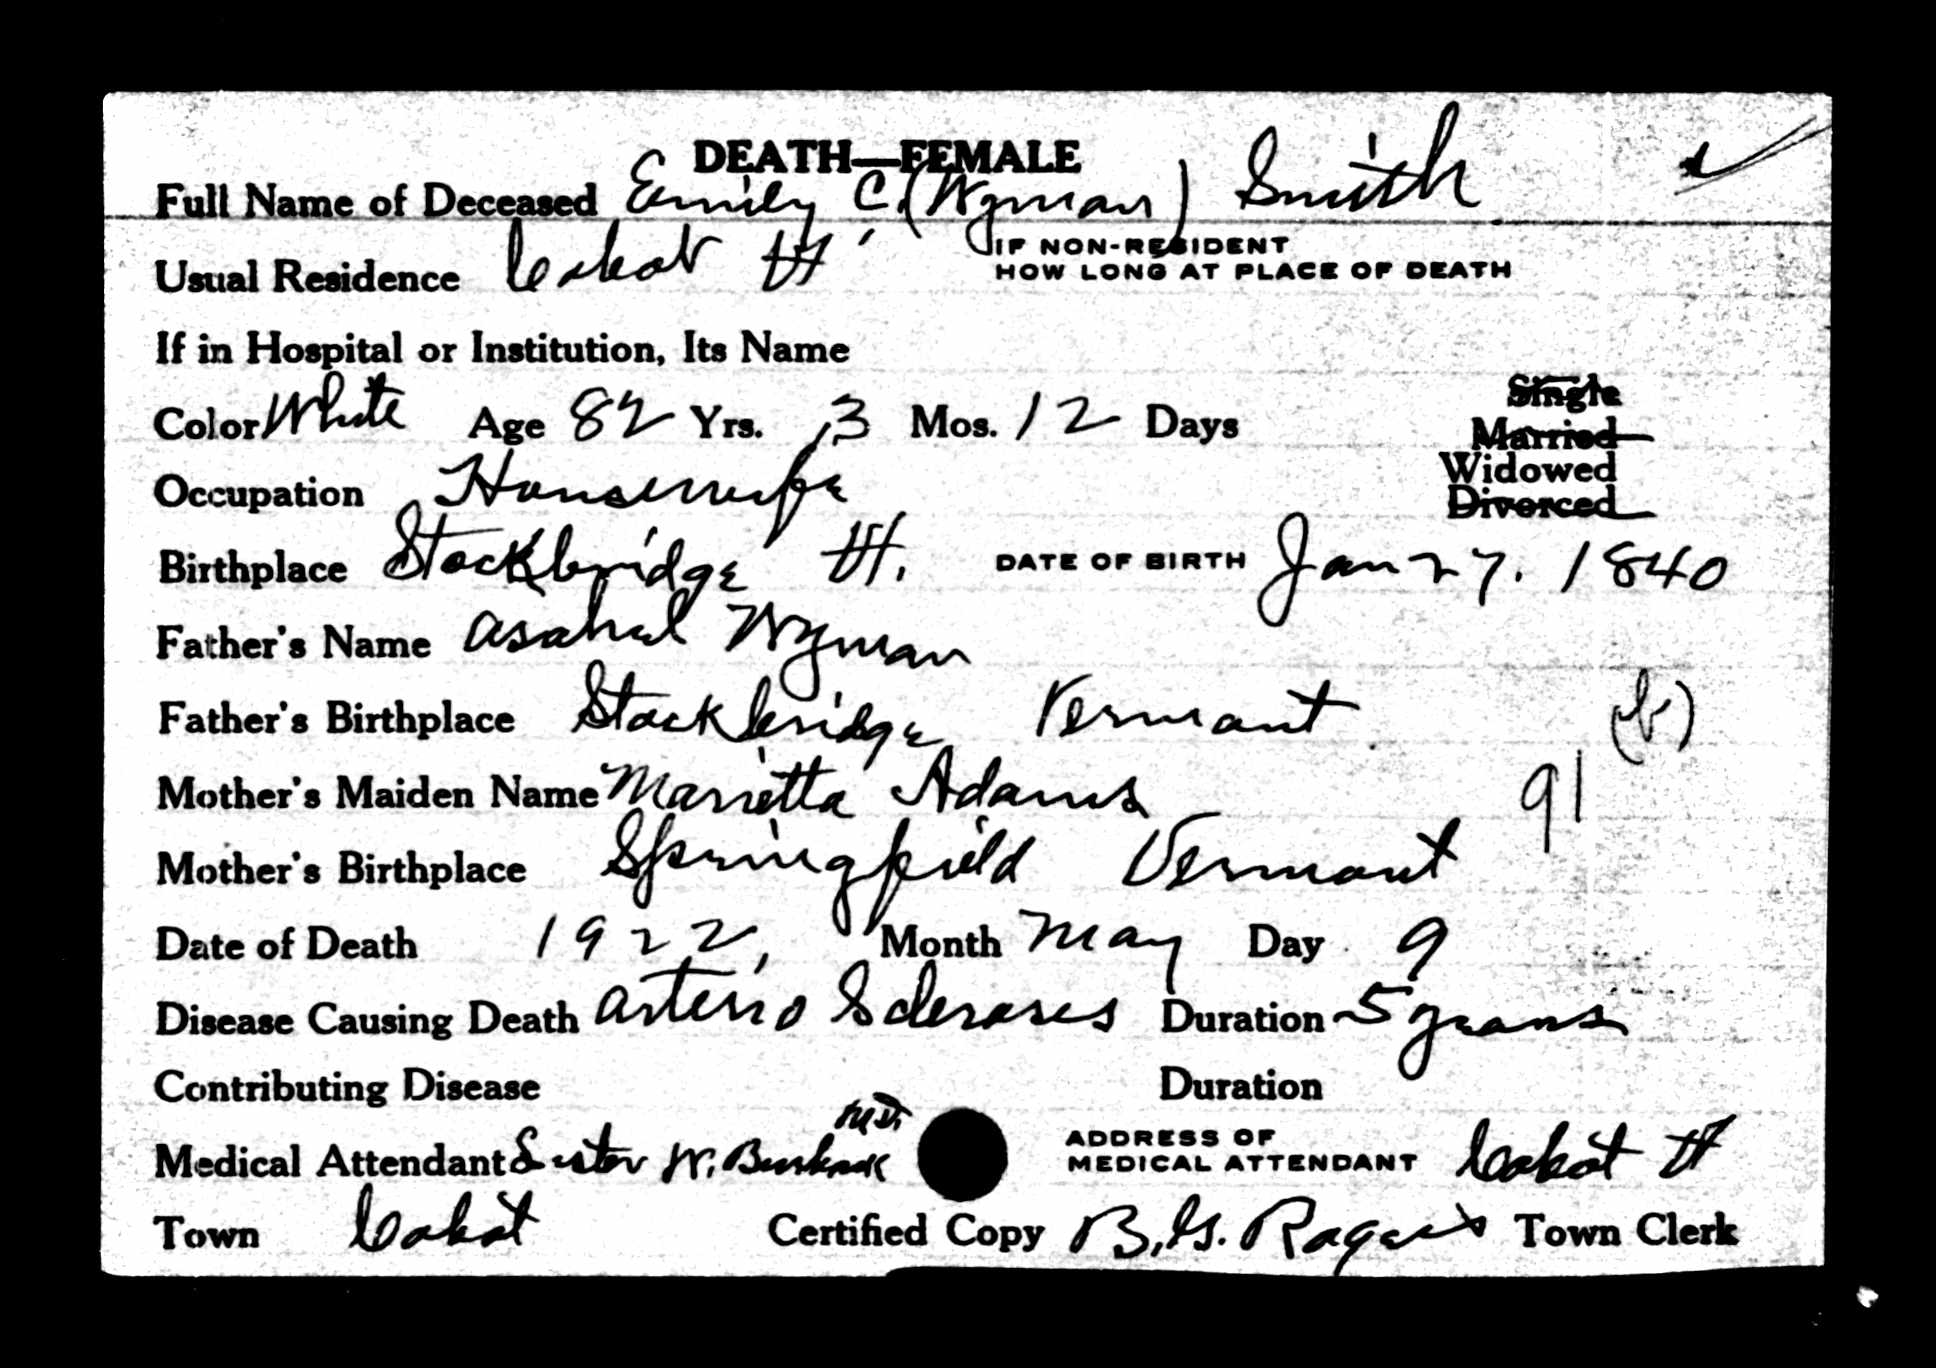 DEATH—FEMALE
Full Name of Deceased Emily C. (Wyman) Smith
Usual Residence Cabot Vt IF NON-RESIDENT
HOW LONG AT PLACE OF DEATH
If in Hospital or Institution, Its Name
Color White Age 82 Yrs. 3 Mos. 12 Days
Single
Married
Widowed
Divorced
Occupation Housewife
Birthplace Stockbridge Vt. DATE OF BIRTH Jan 27. 1840
Father's Name Asahel Wyman
Father's Birthplace Stockbridge Vermont (b)
Mother's Maiden Name Marietta Adams 91
Mother's Birthplace Springfield Vermont
Date of Death 1922, Month May Day 9
Disease Causing Death Arterio Scleroses Duration 5 years
Contributing Disease Duration
Medical Attendant W. M.D. ADDRESS OF
MEDICAL ATTENDANT Cabot Vt
Town Cabot Certified Copy B. G. Rogers Town Clerk